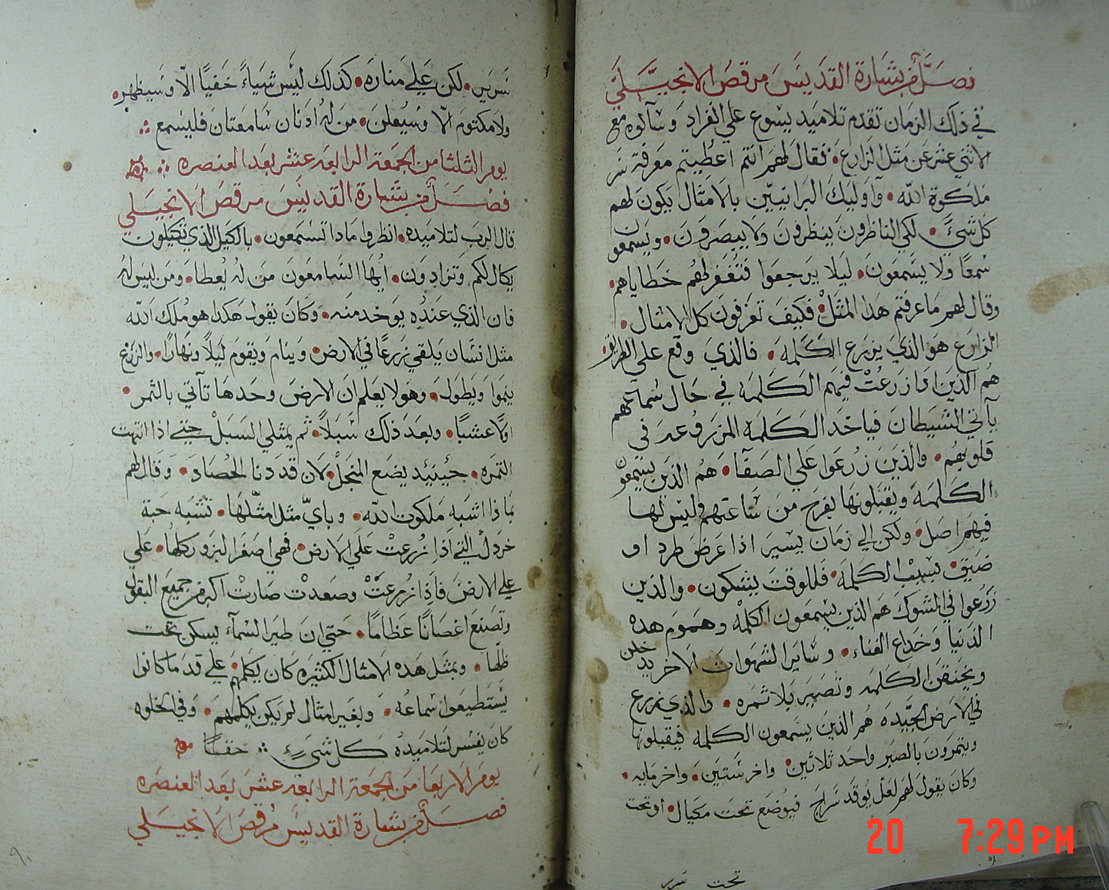 فصل من بشارة القديس مرقص الانجيلي
في ذلك الزمان تقدم تلاميد يسوع علي انفراد وسآلوه مع
الاثني عشر عن مثل الزارع • فقال لهم انتم اعطيتم معرفة سر
ملكوة الله • واوليك البرانيين بالامثال يكون لهم
كل شيء • لكي الناظرون ينظرون ولا يبصرون • ويسمعون
سمعًا ولا يسمعون • ليلا يرجعوا فتغفر لهم خطاياهم •
وقال لهم ما عرفتم هدا المثل • فكيف تعرفون كل الامثال •
الزارع هو الدي يزرع الكلمه • فالذي وقع علي الطريق •
هم الدين ادا زرعت فيهم الكلمه في حال سماعهم
يآتي الشيطان فياخد الكلمة المزروعه في
قلوبهم • والدين زرعوا علي الصفا • هم الدين يسمعون
الكلمه ويقبلونها بفرح من ساعتهم وليس لها
فيهم اصل • ولكن الي زمان يسير اذا عرض طرد او
ضيق بسبب الكلمه • فللوقت يشكون • والدين
زرعوا في الشوك هم الدين يسمعون الكلمه وهموم هده
الدنيا وخداع الغناء • وساير الشهوات الاخر يدخلن
ويخنقن الكلمه وتصير بلا ثمره • والدي زرع
في الارض الجيده هم الدين يسمعون الكلمه فيقبلونها
ويتمرون بالصبر واحد ثلاثين • واخر ستين • واخر مايه •
وكان يقول لهم لعل يوقد سراج فيوضع تحت مكيال • او تحت
تحت سرير
سرير • لكن علي مناره • كدلك ليس شياءً خفيًا الّا وسيظهر •
ولا مكتوم الّا وسيعلن • من له ادنان سامعتان فليسمع
يوم الثلثا من الجمعة الرابعه عشر بعد العنصره
فصل من بشارة القديس مرقص الانجيلي
قال الرب لتلاميده • انظروا مادا تسمعون • بالكيل الدي تكيلون
يكال لكم • وتزادون • ايها السامعون من له يعطا • ومن ليس له
فان الذي عنده يوخد منه • وكان يقول هكدا هو ملك الله
مثل انسان يلقي زرعًا في الارض • وينام ويقوم ليلًا ونهارًا • والزرع
ينموا ويطول • وهو لا يعلم ان الارض وحدها تآتي بالثمر •
اولًا عشبًا • وبعد ذلك سبلًا • ثم يمتلي السبل حتي اذا انتهت
الثمره • حينيد يضع المنجل • لان قد دنا الحصاد • وقال لهم
بماذا اشبه ملكوت الله • وباي مثل امثلها • تشبه حبة
خردل التي اذا زرعت علي الارض • فهي اصغر البزور كلها • علي
علي الارض فاذا زرعت وصعدت صارت اكبر من جميع البقول
وتصنع اغصانًا عظامًا • حتي ان طير السمآء يسكن تحت
ظلها • وبمثل هده الامثال الكثيره كان يكلمهم علي قد ما كانوا
يستطيعوا سماعه • وبغير امثال لم يكن يكلمهم • وفي الخلوه
كان يفسر لتلاميده كل شيء حقًا
يوم الاربعا من الجمعة الرابعه عشر بعد العنصره
فصل من بشارة القديس مرقص الانجيلي
٩٠
20 7:29 PM